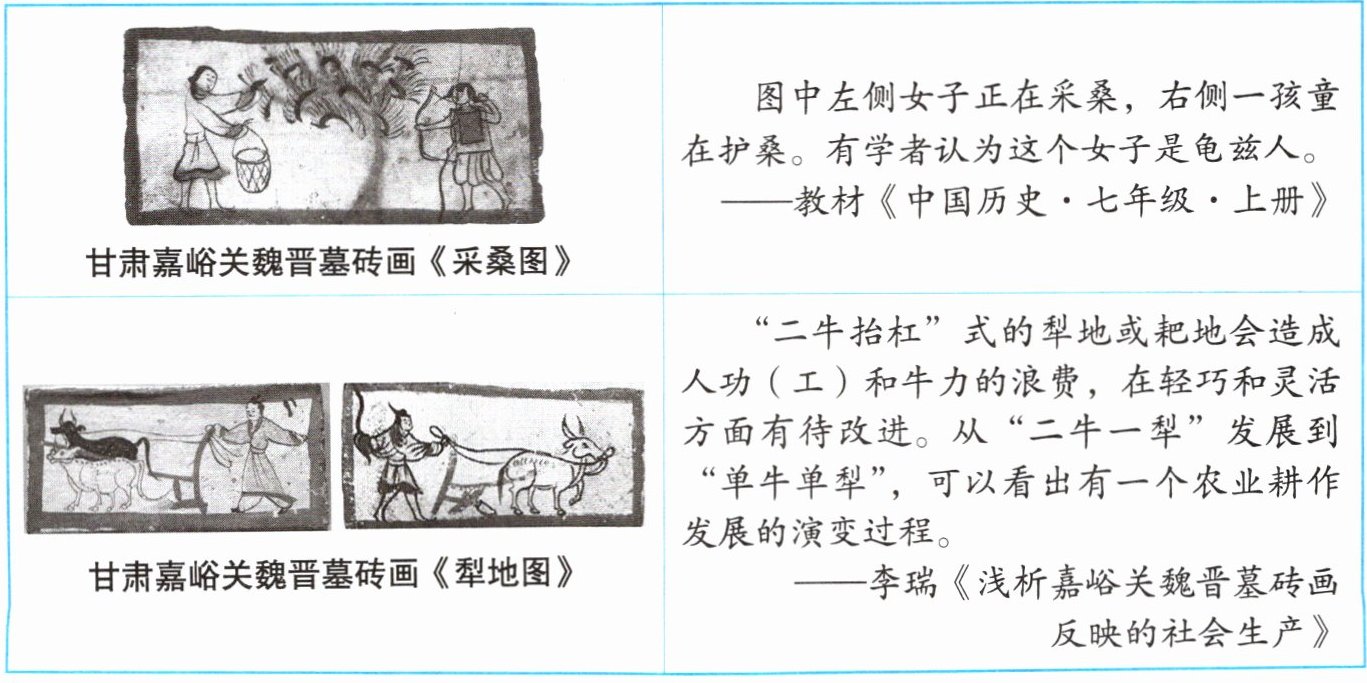 图中左侧女子正在采桑，右侧一孩童
在护桑。有学者认为这个女子是龟兹人。
——教材《中国历史·七年级·上册》
甘肃嘉峪关魏晋墓砖画《采桑图》
“二牛抬杠”式的犁地或耙地会造成
人功（工）和牛力的浪费，在轻巧和灵活
方面有待改进。从“二牛一犁”发展到
“单牛单犁”，可以看出有一个农业耕作
发展的演变过程。
——李瑞《浅析嘉峪关魏晋墓砖画
反映的社会生产》
甘肃嘉峪关魏晋墓砖画《犁地图》